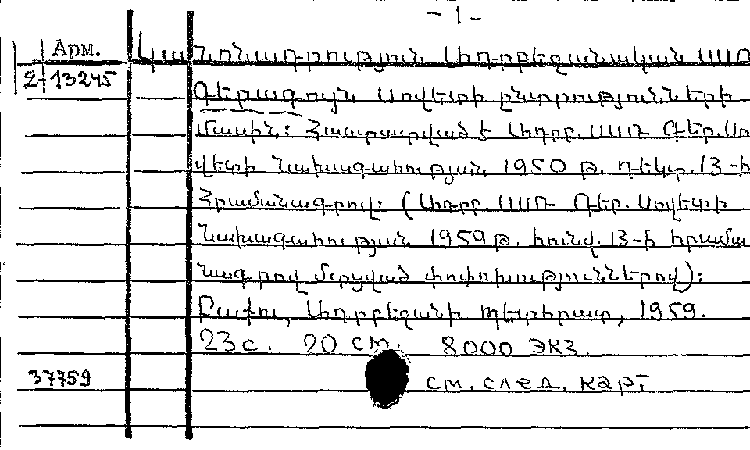 - 1 -
Арм.
2-13245
Կանոնադրություն Ադրբեջանական ՍՍՌ
Գերագույն Սովետի ընտրությունների
մասին: Հաստատված է Ադրբ. ՍՍՌ Գեր. Սո
վետի Նախագահության 1950 թ. դեկտ. 13-ի
Հրամանագրով: (Ադրբ ՍՍՌ Գեր. Սովետի
Նախագահության 1959 թ. հունվ. 13-ի հրամա
նագրով մտցված փոփոխություններով):
Բաքու, Ադրբեջանի պետհրատ, 1959.
23 с. 20 см. 8000 экз.
37759
см. след. карт